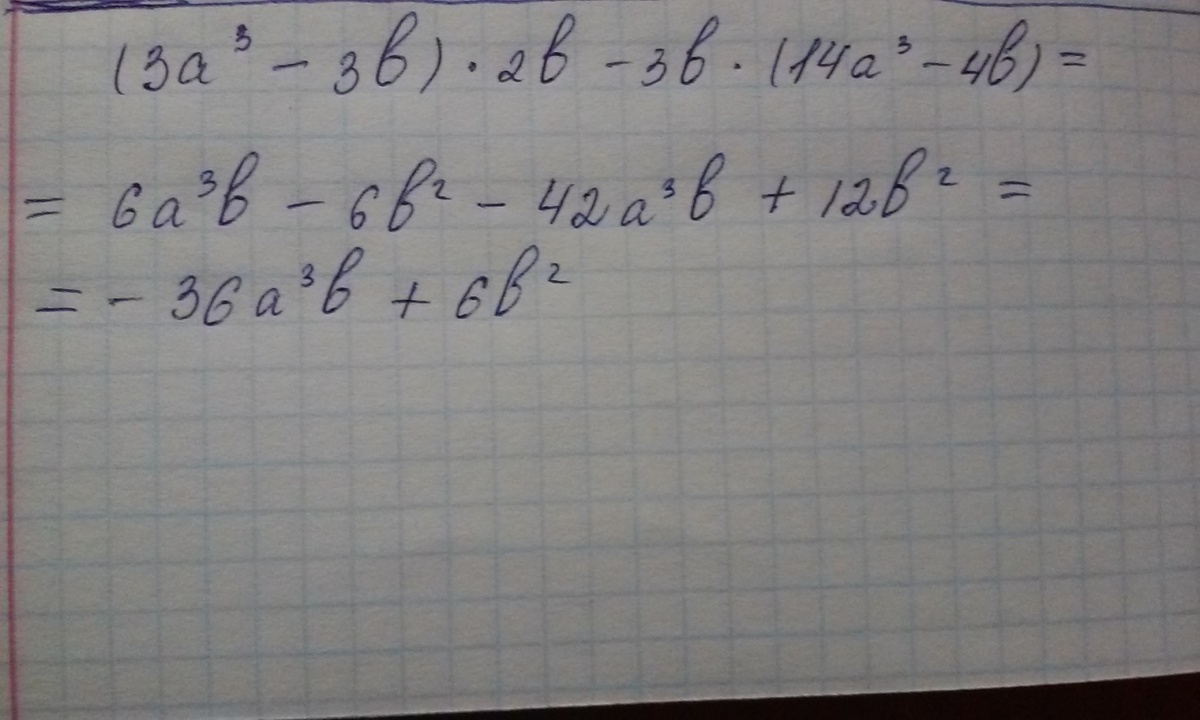 (3a³ - 3b) · 2b - 3b · (14a³ - 4b) =
= 6a³b - 6b² - 42a³b + 12b² =
= - 36a³b + 6b²